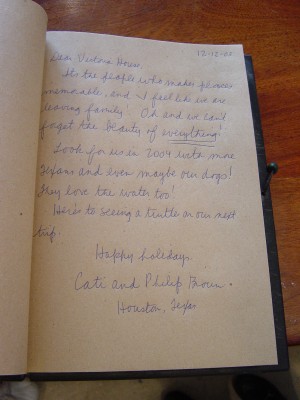 12-12-08
Dear Victoria House,
Its the people who makes places
memorable, and I feel like we are
leaving family! Oh and we can't
forget the beauty of everything!
Look for us in 2009 with more
Texans and even maybe our dogs!
They love the water too!
Here's to seeing a turtle on our next
trip.
Happy holidays
Cati and Philip Broun.
Houston, Texas